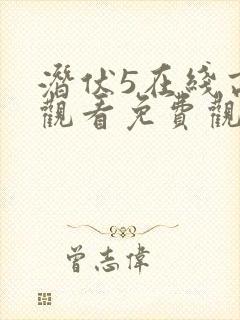 潛伏5在綫
觀看免費觀
曾志偉